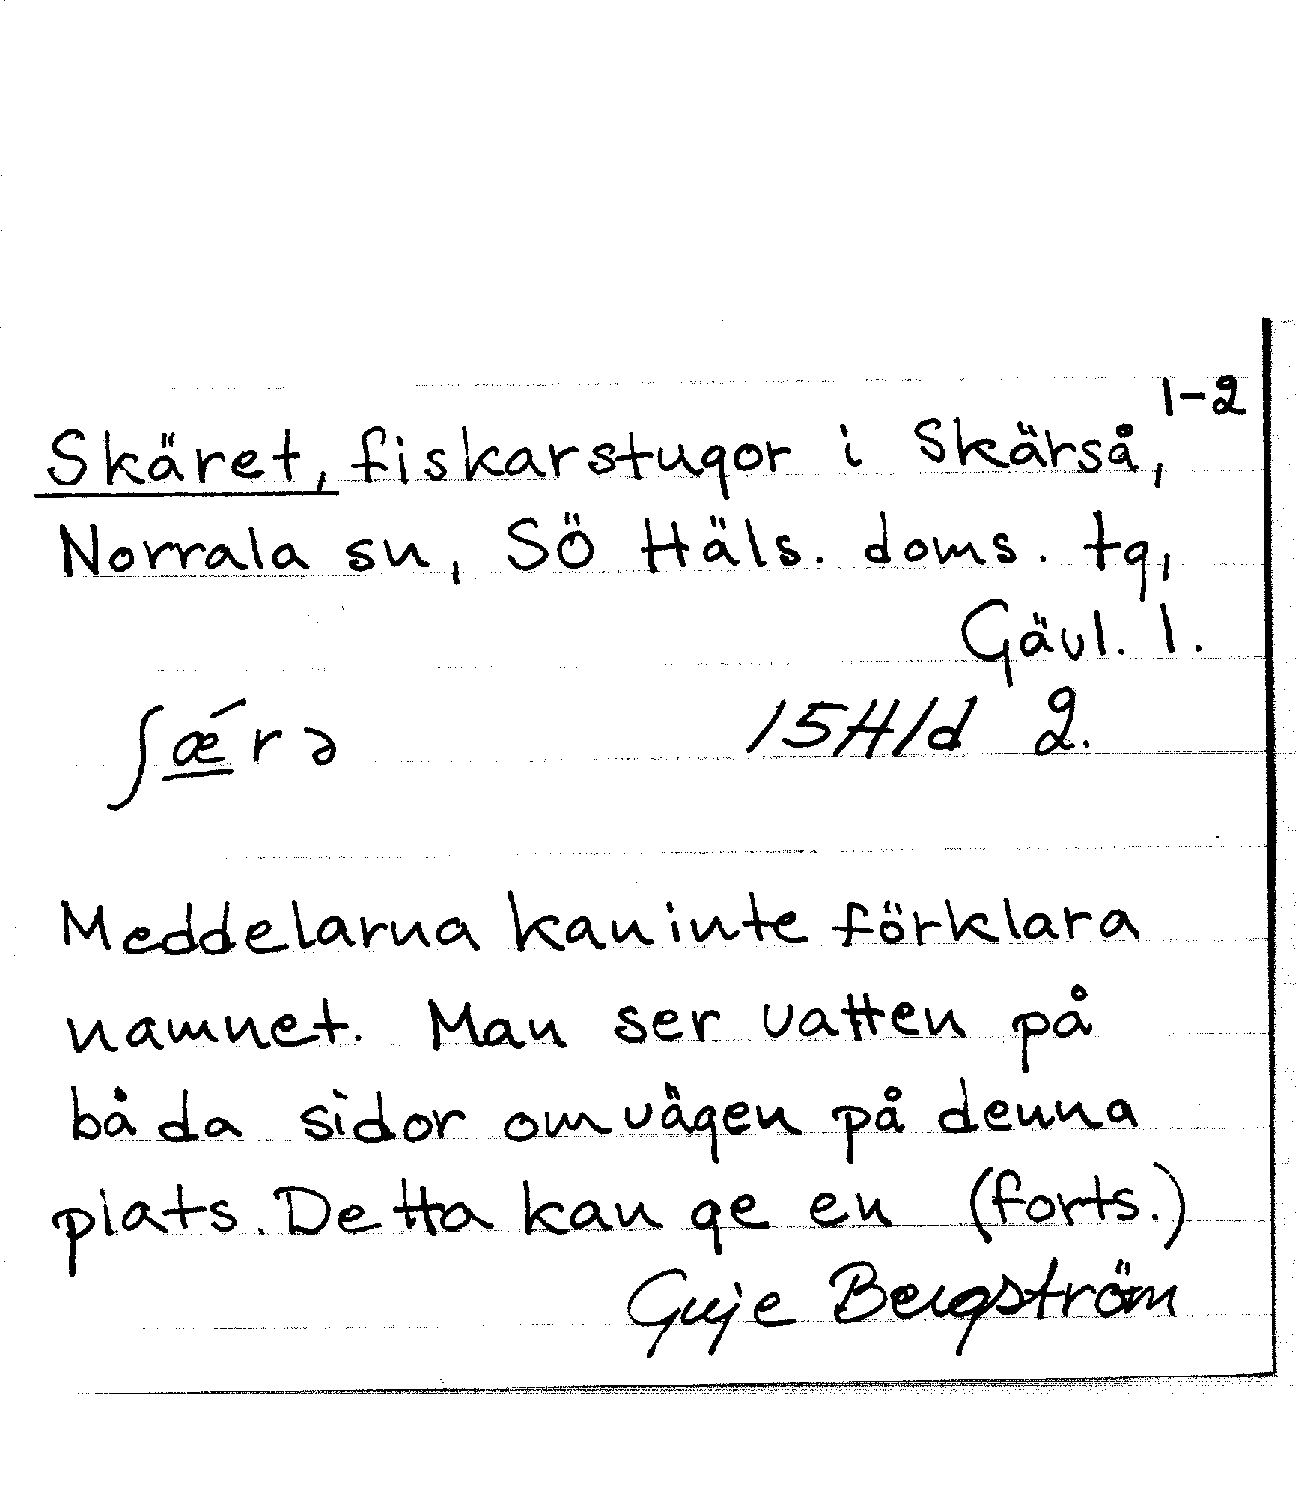 1-2
Skäret, fiskarstugor i Skärså,
Norrala sn, Sö Häls. doms. tg,
Gävl. l.
ʃǽrə 15H1d 2.
Meddelarna kan inte förklara
namnet. Man ser vatten på
båda sidor om vägen på denna
plats. Detta kan ge en (forts.)
Guje Bergström